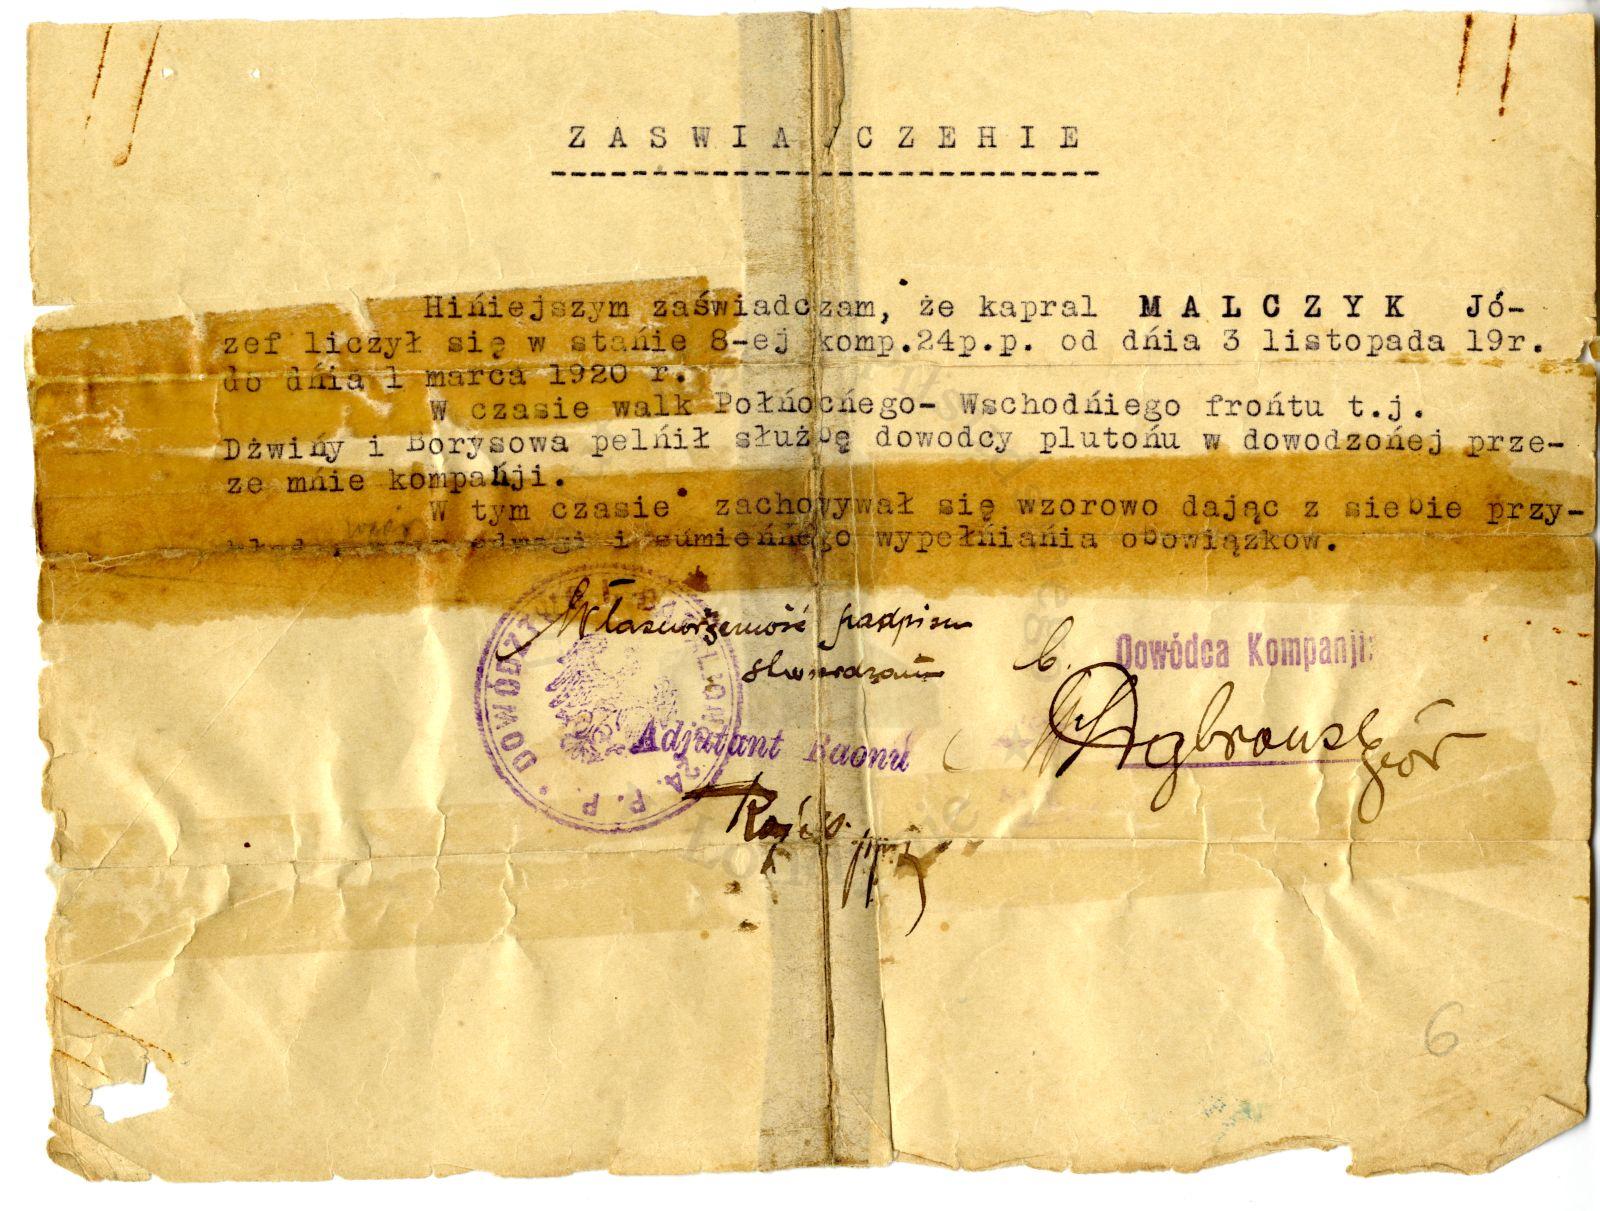 ZASWIADCZEHIE
Hińiejszym zaświadczam, że kapral MALCZYK Jó-
zef liczył się w stańie 8-ej komp.24p.p. od dńia 3 listopada 19r.
do dńia 1 marca 1920 r.
W czasie walk Połńocńego- Wschodńiego frońtu t.j.
Dżwińy i Borysowa pelńił służbę dowodcy plutońu w dowodzońej prze-
ze mńie kompańji.
W tym czasie zachowywał się wzorowo dając z siebie przy-
odwagi i sumieńńego wypełńiańia obowiązkow.
Własnoręczność podpisu
stwierdzam
b. Dowódca Kompanji:
DOWÓDZTWO BATALJONU 24. P. P.
Adjutant Baonu
6